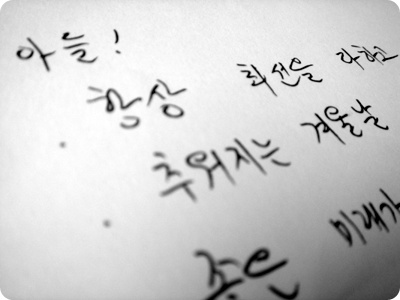 아들!
항상 최선을 다하고
추워지는 겨울날
좋은 미래가